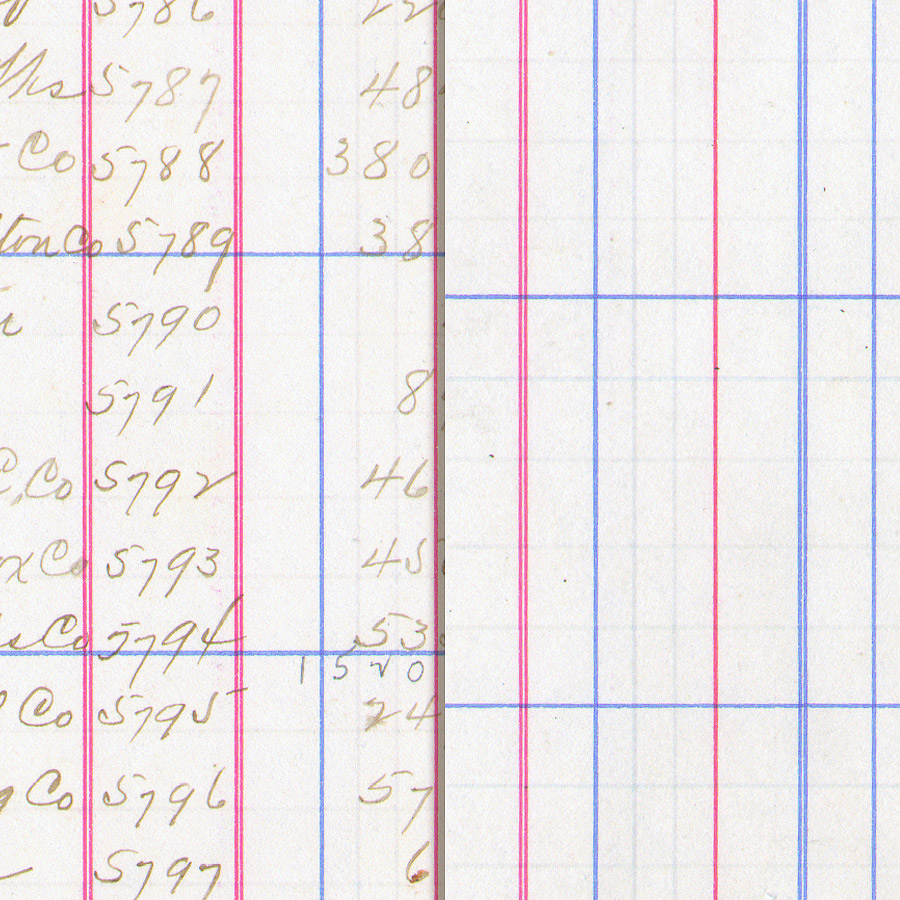 5786
5787 48
Co 5788 380
ton Co 5789 38
5790
5791 8
C, Co 5792 46
x Co 5793 45
s Co 5794 53
1520
Co 5795 24
g Co 5796 57
5797 6